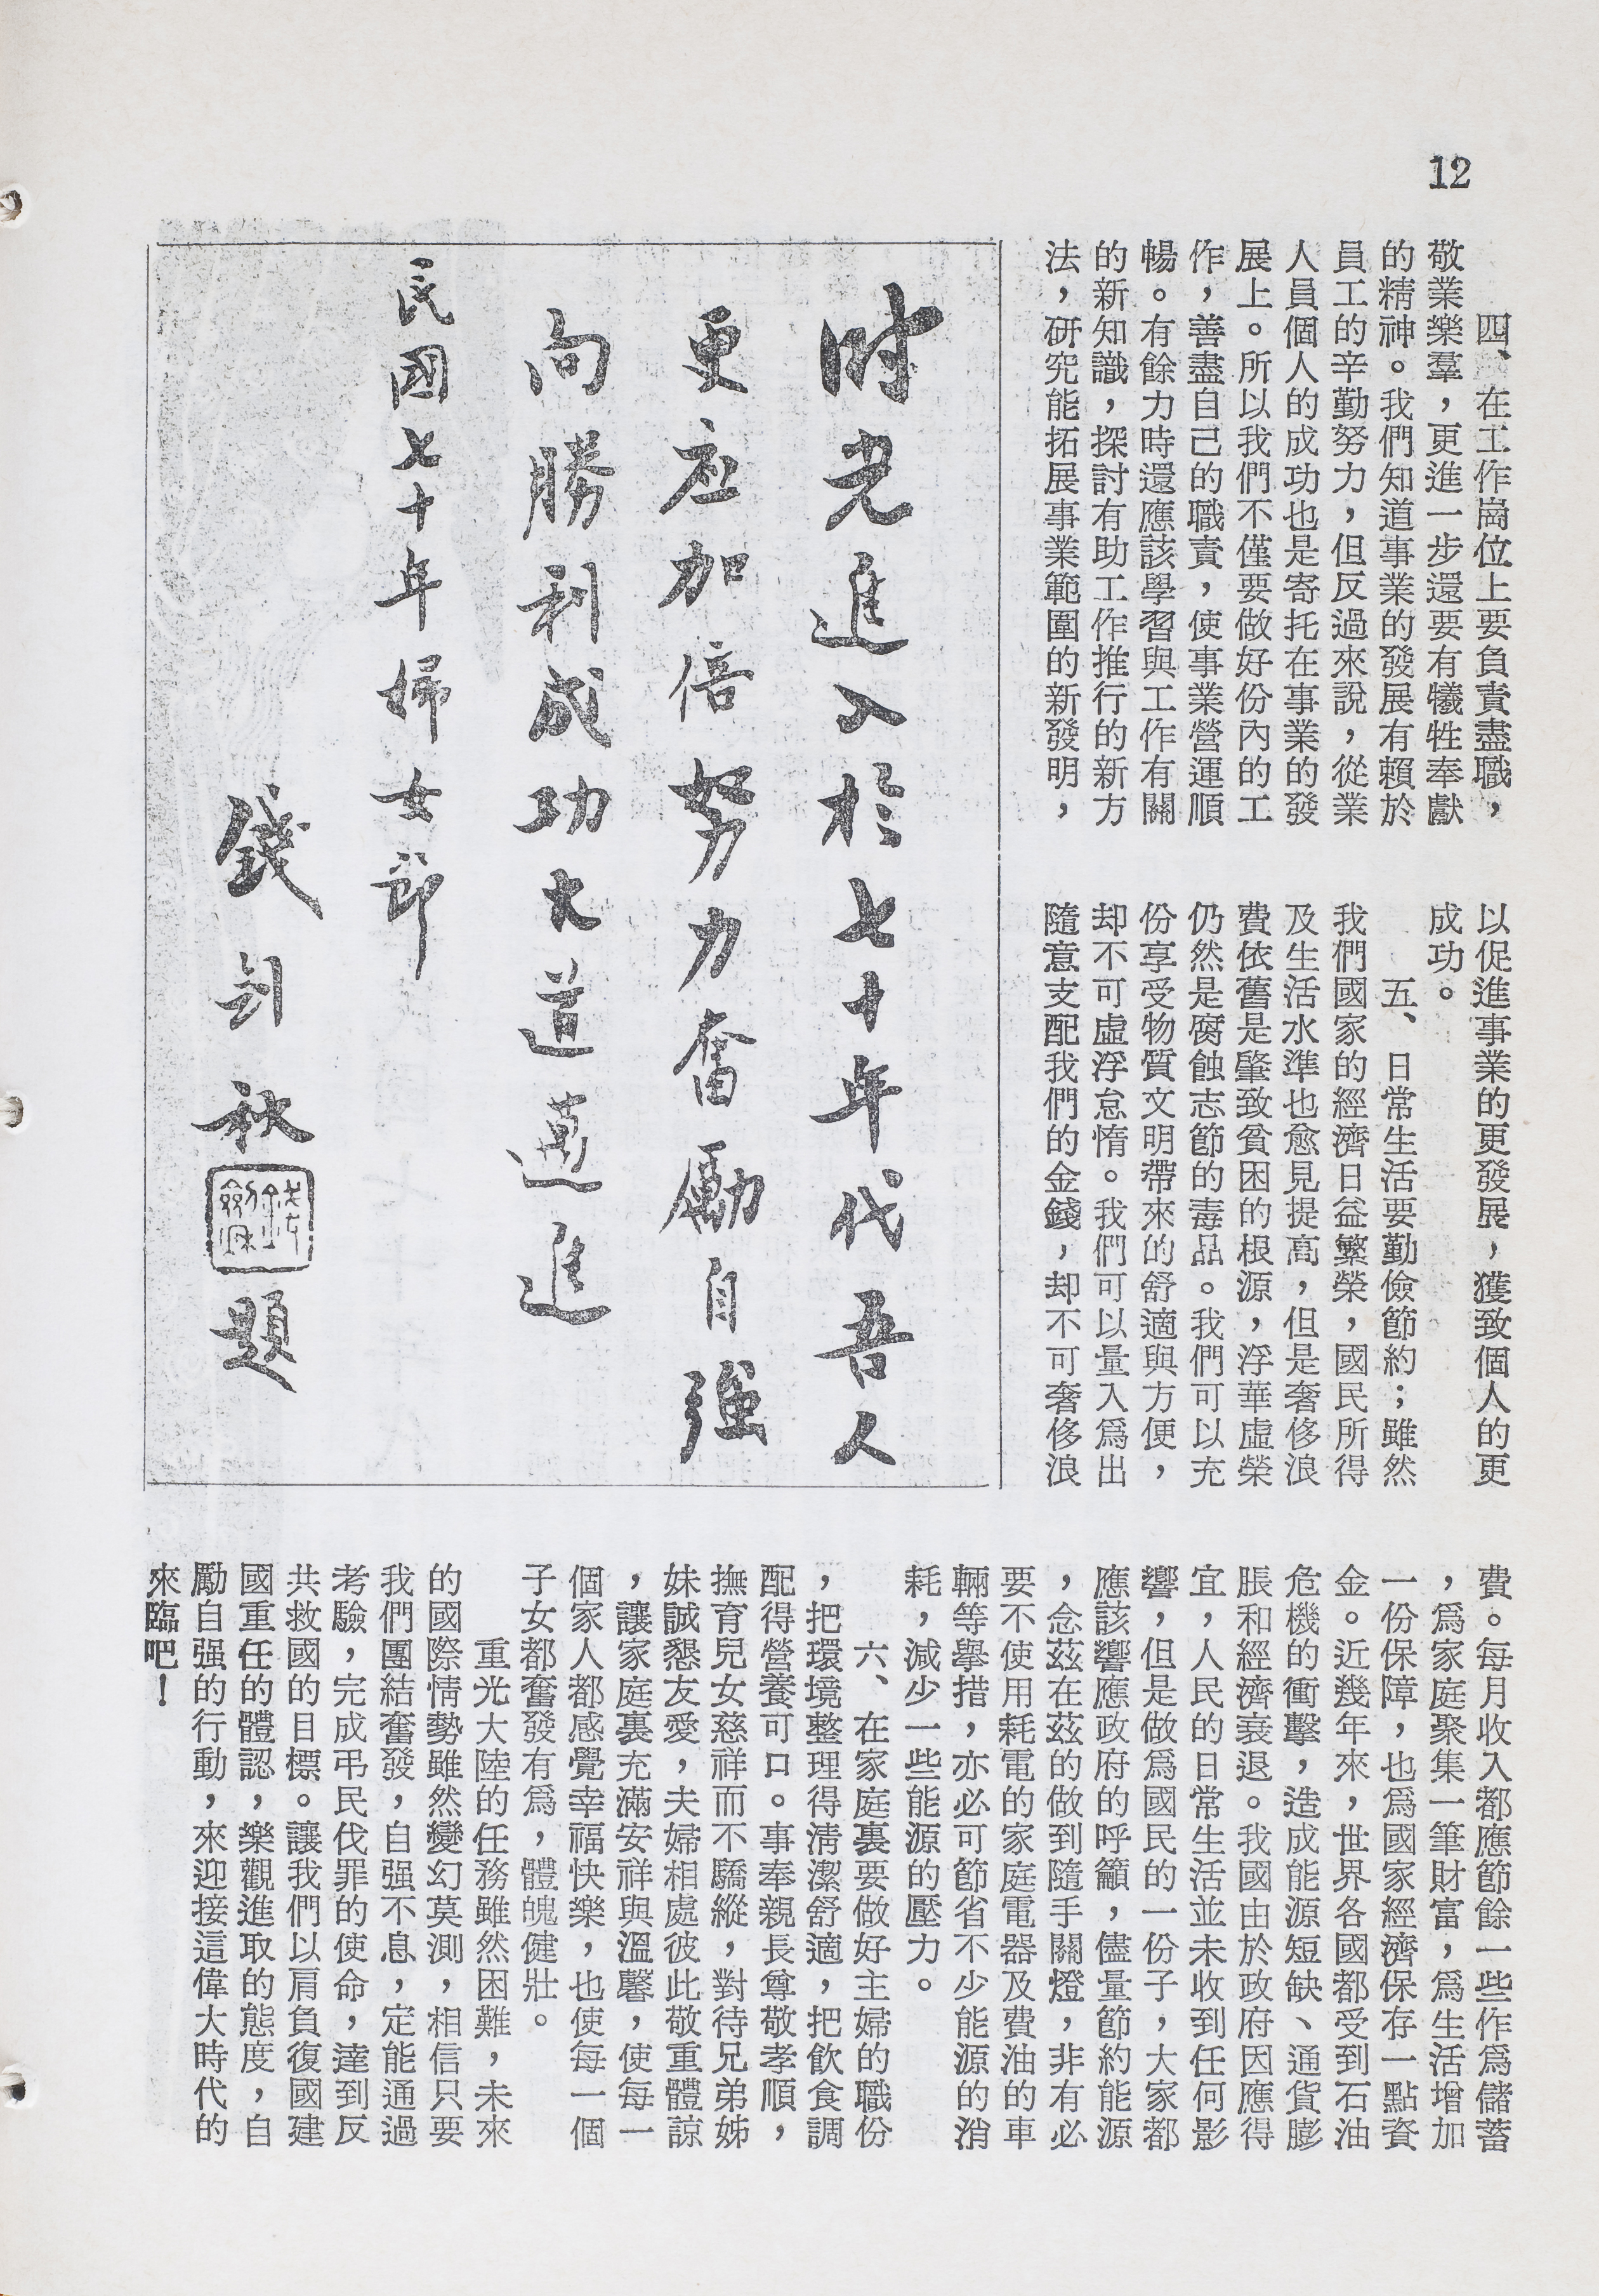 12
四、在工作崗位上要負責盡職，
敬業樂羣，更進一步還要有犧牲奉獻
的精神。我們知道事業的發展有賴於
員工的辛勤努力，但反過來說，從業
人員個人的成功也是寄托在事業的發
展上。所以我們不僅要做好份內的工
作，善盡自己的職責，使事業營運順
暢。有餘力時還應該學習與工作有關
的新知識，探討有助工作推行的新方
法，研究能拓展事業範圍的新發明，
以促進事業的更發展，獲致個人的更
成功。
五、日常生活要勤儉節約；雖然
我們國家的經濟日益繁榮，國民所得
及生活水準也愈見提高，但是奢侈浪
費依舊是肇致貧困的根源，浮華虛榮
仍然是腐蝕志節的毒品。我們可以充
份享受物質文明帶來的舒適與方便，
却不可虛浮怠惰。我們可以量入爲出
隨意支配我們的金錢，却不可奢侈浪
費。每月收入都應節餘一些作爲儲蓄
，爲家庭聚集一筆財富，爲生活增加
一份保障，也爲國家經濟保存一點資
金。近幾年來，世界各國都受到石油
危機的衝擊，造成能源短缺、通貨膨
脹和經濟衰退。我國由於政府因應得
宜，人民的日常生活並未收到任何影
響，但是做爲國民的一份子，大家都
應該響應政府的呼籲，儘量節約能源
，念茲在茲的做到隨手關燈，非有必
要不使用耗電的家庭電器及費油的車
輛等舉措，亦必可節省不少能源的消
耗，減少一些能源的壓力。
六、在家庭裏要做好主婦的職份
，把環境整理得清潔舒適，把飲食調
配得營養可口。事奉親長尊敬孝順，
撫育兒女慈祥而不驕縱，對待兄弟姊
妹誠懇友愛，夫婦相處彼此敬重體諒
，讓家庭裏充滿安祥與溫馨，使每一
個家人都感覺幸福快樂，也使每一個
子女都奮發有爲，體魄健壯。
重光大陸的任務雖然困難，未來
的國際情勢雖然變幻莫測，相信只要
我們團結奮發，自强不息，定能通過
考驗，完成弔民伐罪的使命，達到反
共救國的目標。讓我們以肩負復國建
國重任的體認，樂觀進取的態度，自
勵自强的行動，來迎接這偉大時代的
來臨吧！
时光進入於七十年代吾人
更应加倍努力奮勵自強
向勝利成功大道邁進
民國七十年婦女節
錢剑秋
錢劍秋
題